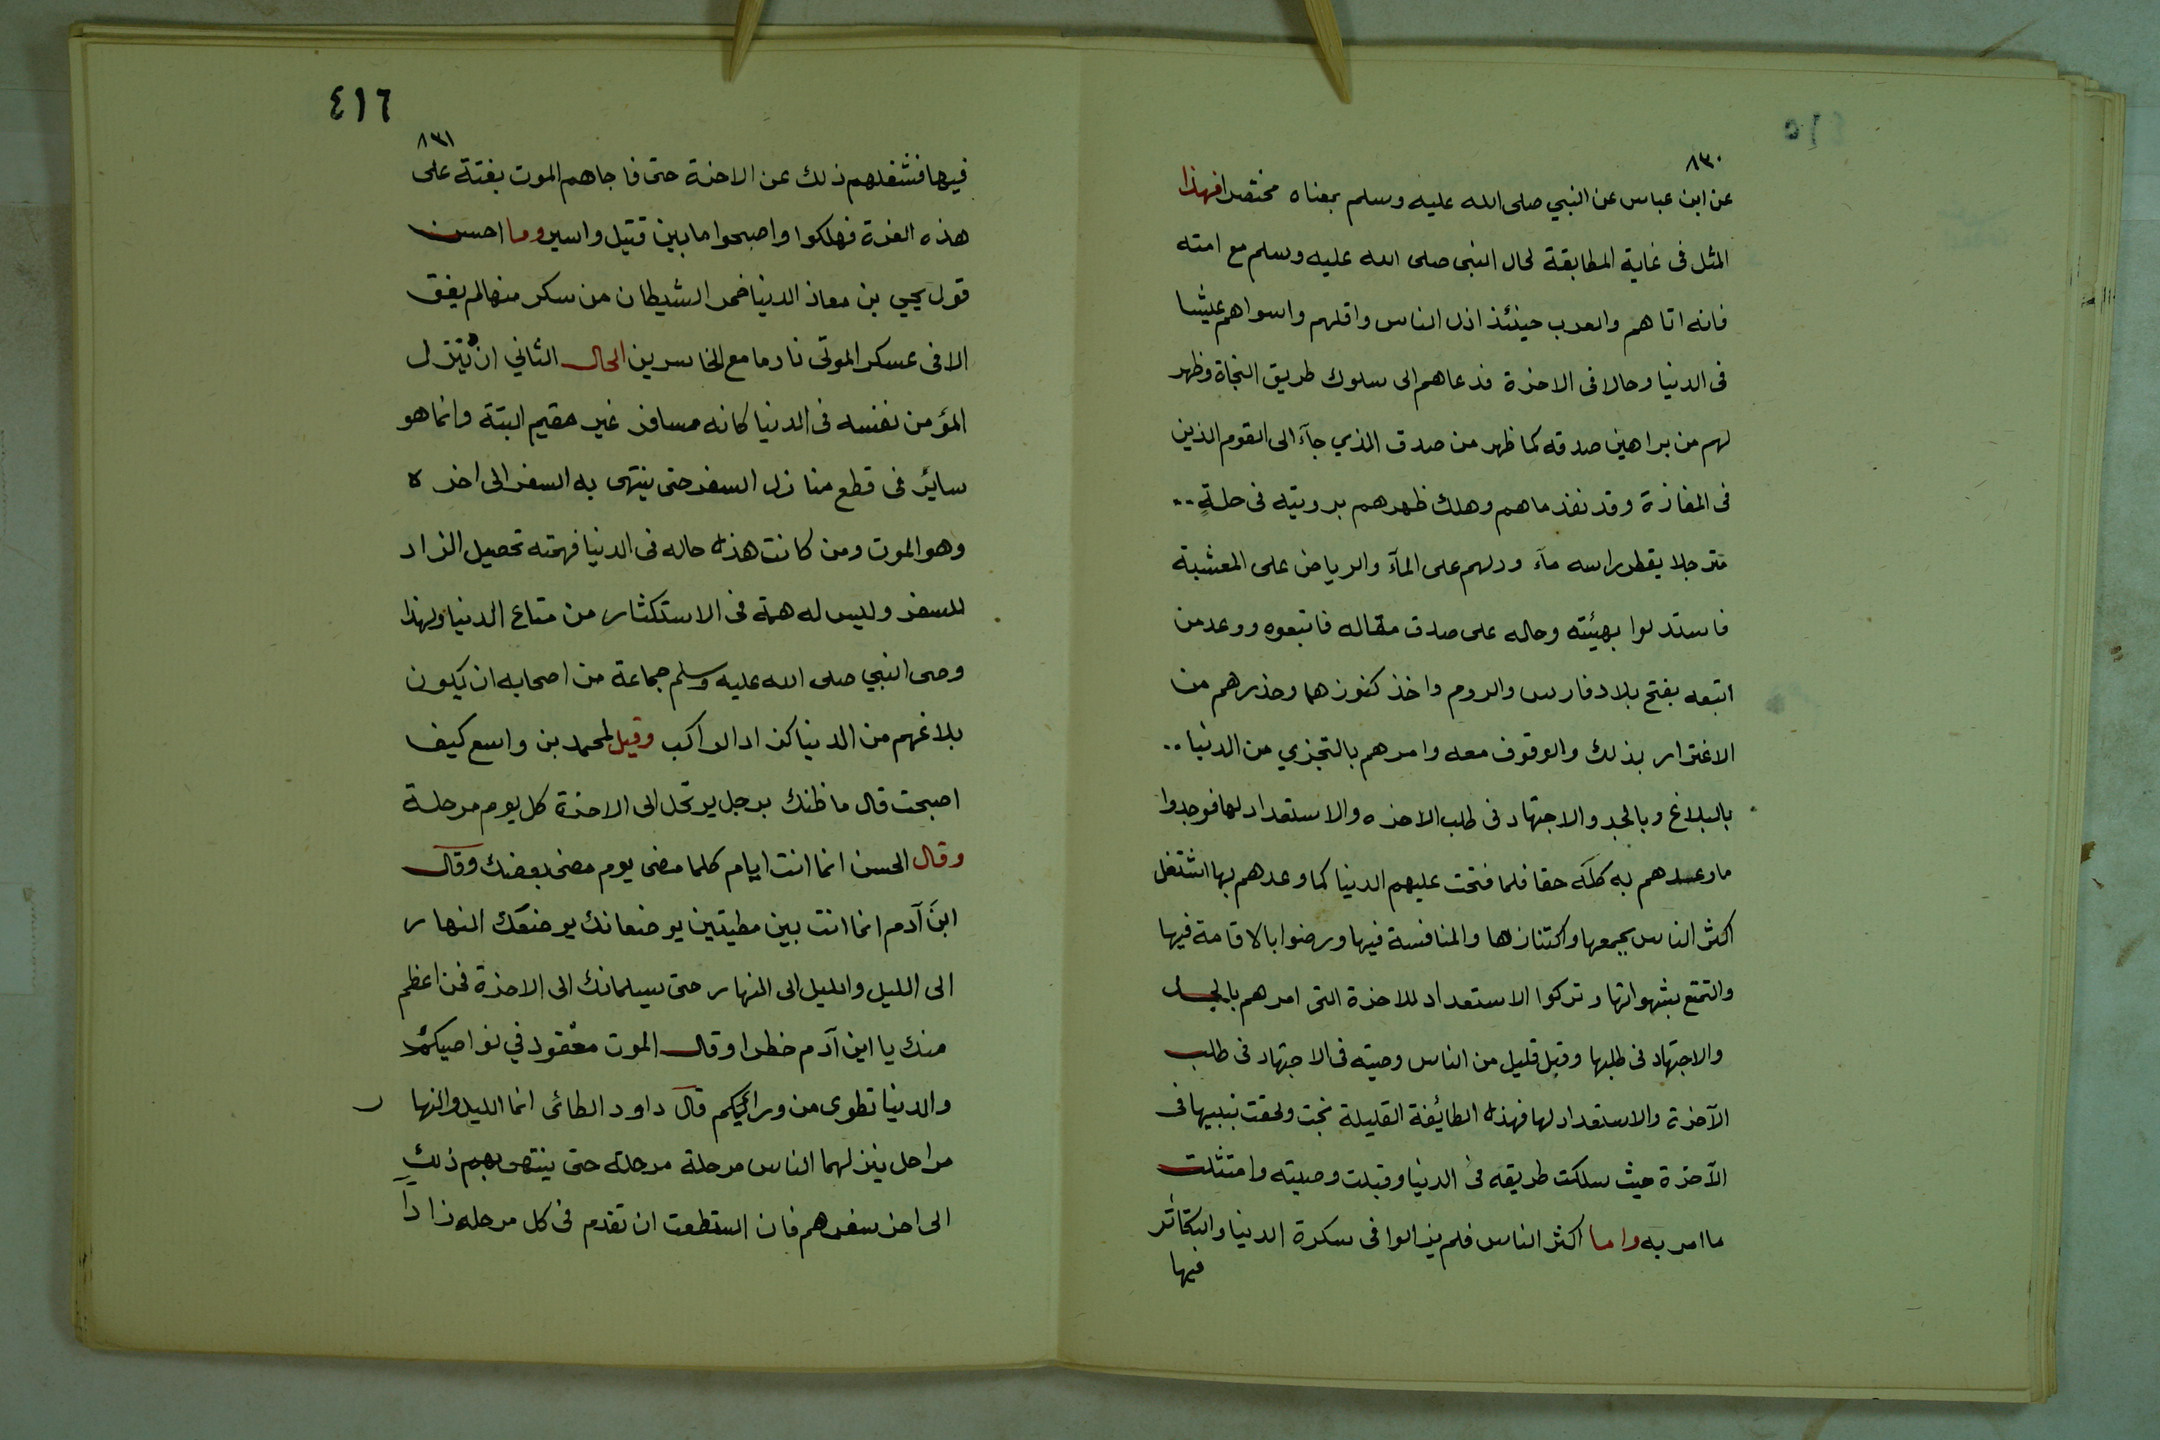 ٨٣٠
عن ابن عباس عن النبي صلى الله عليه وسلم بمعناه مختصرا فهذا
المثل فى غاية المطابقة لحال النبى صلى الله عليه وسلم مع امته
فانه اتاهم والعرب حينئذ اذل الناس واقلهم واسواهم عيشا
فى الدنيا وحالا فى الاخرة فدعاهم الى سلوك طريق النجاة وظهر
لهم من براهين صدقه كما ظهر من صدق الذي جآء الى القوم الذين
فى المفازة وقد نفذ ماهم وهلك ظهرهم برويته فى حلةٍ
مترجلا يقطر راسه مآء ودلهم على المآء والرياض على المعشبة
فاستدلوا بهيئته وحاله على صدق مقاله فاتبعوه ووعد من
اتبعه بفتح بلاد فارس والروم واخذ كنوزهما وحذرهم من
الاغترار بذلك والوقوف معه وامرهم بالتجزي من الدنيا
بالبلاغ وبالجد والاجتهاد فى طلب الاخره والاستعداد لها فوجدوا
ما وعدهم به كله حقا فلما فتحت عليهم الدنيا كما وعدهم بها اشتغل
اكثر الناس بجمعها واكتنازها والمنافسة فيها ورضوا بالاقامة فيها
والتمتع بشهواتها وتركوا الاستعداد للاخرة التى امرهم بالجد
والاجتهاد فى طلبها وقبل قليل من الناس وصيته فى الاجتهاد فى طلب
الآخرة والاستعداد لها فهذه الطائفة القليلة نجت ولحقت بنبيها فى
الآخرة حيث سلكت طريقه فى الدنيا وقبلت وصيته وامتثلت
ما امر به واما اكثر الناس فلم يزالوا فى سكرة الدنيا والتكاثر
فيها
٤١٦
٨٣١
فيها فشغلهم ذلك عن الاخرة حتى فاجاهم الموت بغتة على
هذه الغرة فهلكوا واصبحوا ما بين قتيل واسير وما احسن
قول يحيي بن معاذ الدنيا خمر الشيطان من سكر منها لم يفق
الا فى عسكر الموتى نادما مع الخاسرين الحال الثاني ان ينزل
المؤمن نفسه فى الدنيا كانه مسافر غير مقيم البتة وانما هو
سائر فى قطع منازل السفر حتى ينتهى به السفر الى اخره
وهو الموت ومن كانت هذه حاله فى الدنيا فهمته تحصيل الزاد
للسفر وليس له همة فى الاستكثار من متاع الدنيا ولهذا
وصى النبي صلى الله عليه وسلم جماعة من اصحابه ان يكون
بلاغهم من الدنيا كزاد الراكب وقيل لمحمد بن واسع كيف
اصبحت قال ما ظنك برجل يرتحل الى الاخرة كل يوم مرحلة
وقال الحسن انما انت ايام كلما مضى يوم مضى بعضك وقال
ابنَ آدم انما انت بين مطيتين يوضعانك يوضعك النهار
الى الليل والليل الى النهار حتى يسلمانك الى الاخرة فمن اعظم
منك يا ابن آدم خطرا وقال الموت معقود في نواصيكم
والدنيا تطوى من ورائكم قال داود الطائى انما الليل والنهار
مراحل ينزلهما الناس مرحلة مرحلة حتى ينتهى بهم ذلك
الى اخر سفرهم فان استطعت ان تقدم فى كل مرحله زاداً